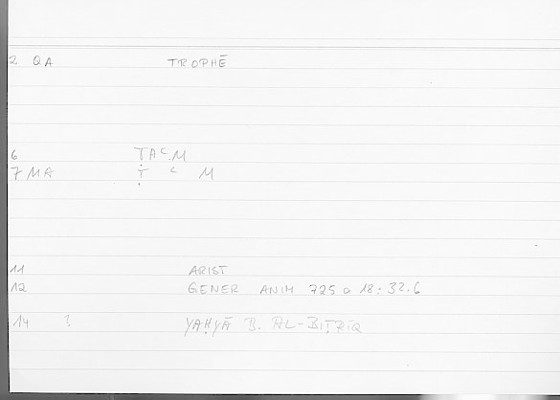 2 QA TROPHĒ
6 ṬAᶜM
7 MA Ṭ ᶜ M
11 ARIST
12 GENER ANIM 725 a 18: 32.6
14 ? YAḤYĀ B. AL-BIṬRĪQ